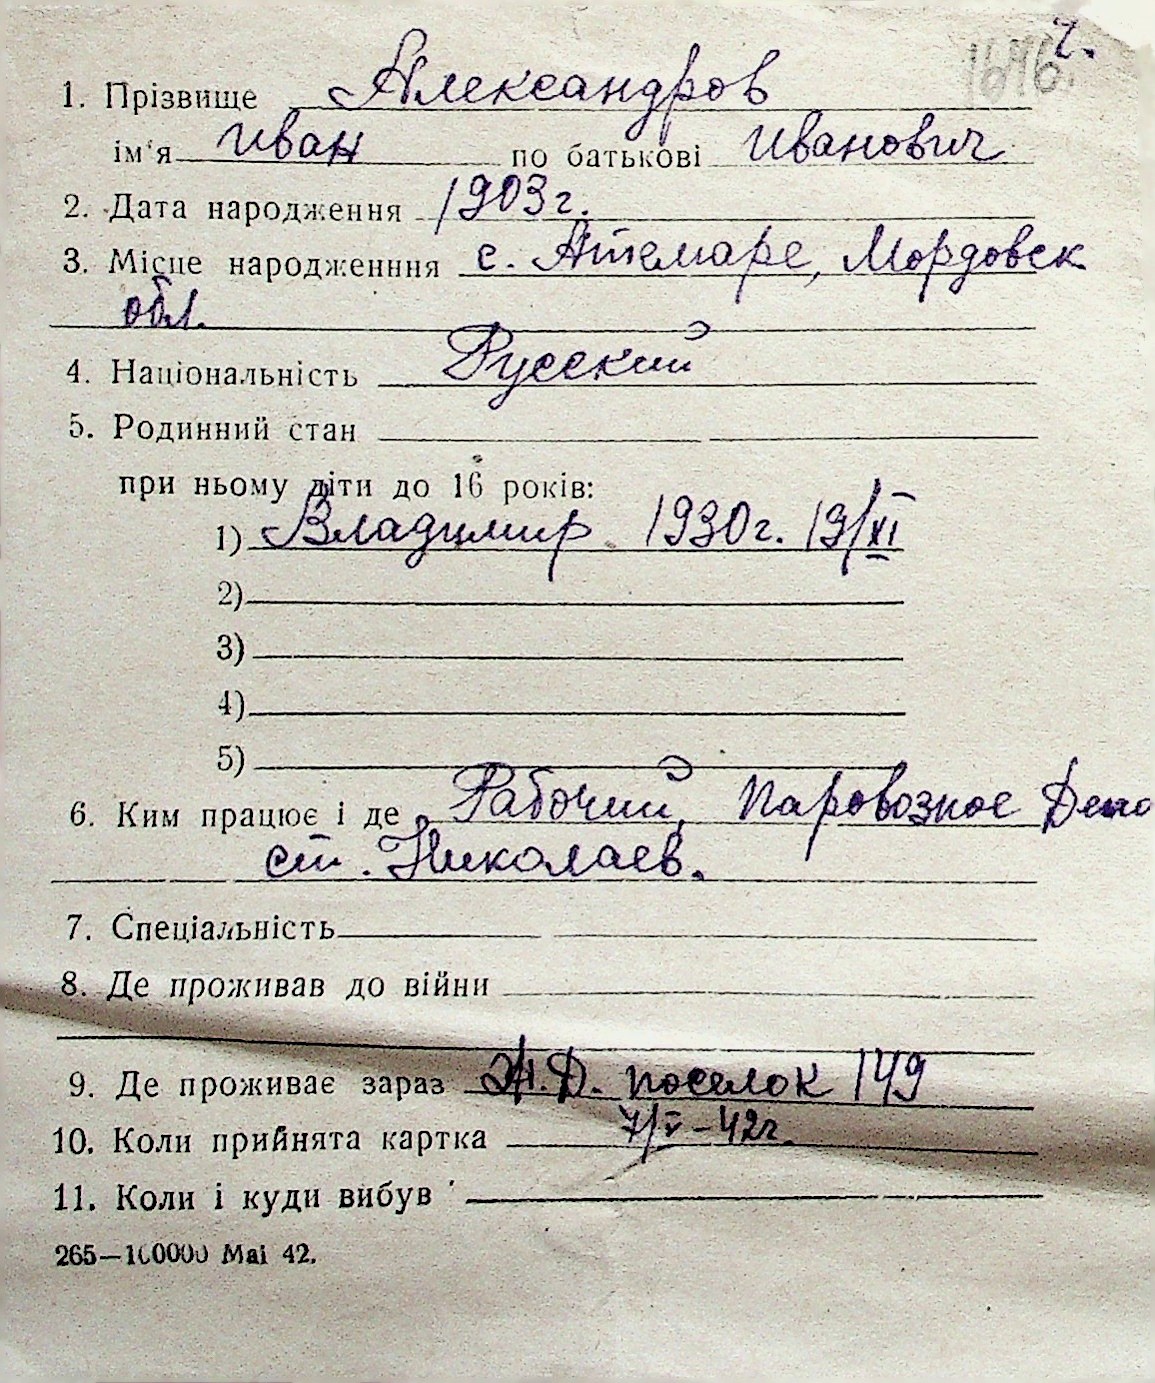 1646. 2.
1. Прізвище Александров
ім'я Иван по батькові Иванович
2. Дата народження 1903г.
3. Місце народженння с. Атемаре, Мордовск
обл.
4. Національність Русский
5. Родинний стан
при ньому діти до 16 років:
1) Владимир 1930г. 19/XI
2)
3)
4)
5)
6. Ким працює і де Рабочий, Паровозное Депо
ст. Николаев.
7. Спеціальність
8. Де проживав до війни
9. Де проживає зараз Ж.Д. поселок 149
10. Коли прийнята картка 7/V-42г.
11. Коли і куди вибув
265—100000 Mai 42.